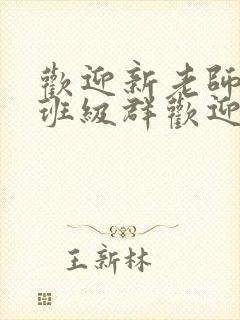 歡迎新老師
班級群歡迎
王新林